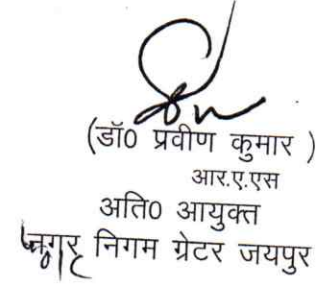 (डॉ0 प्रवीण कुमार )
आर.ए.एस
अति0 आयुक्त
नगर निगम ग्रेटर जयपुर